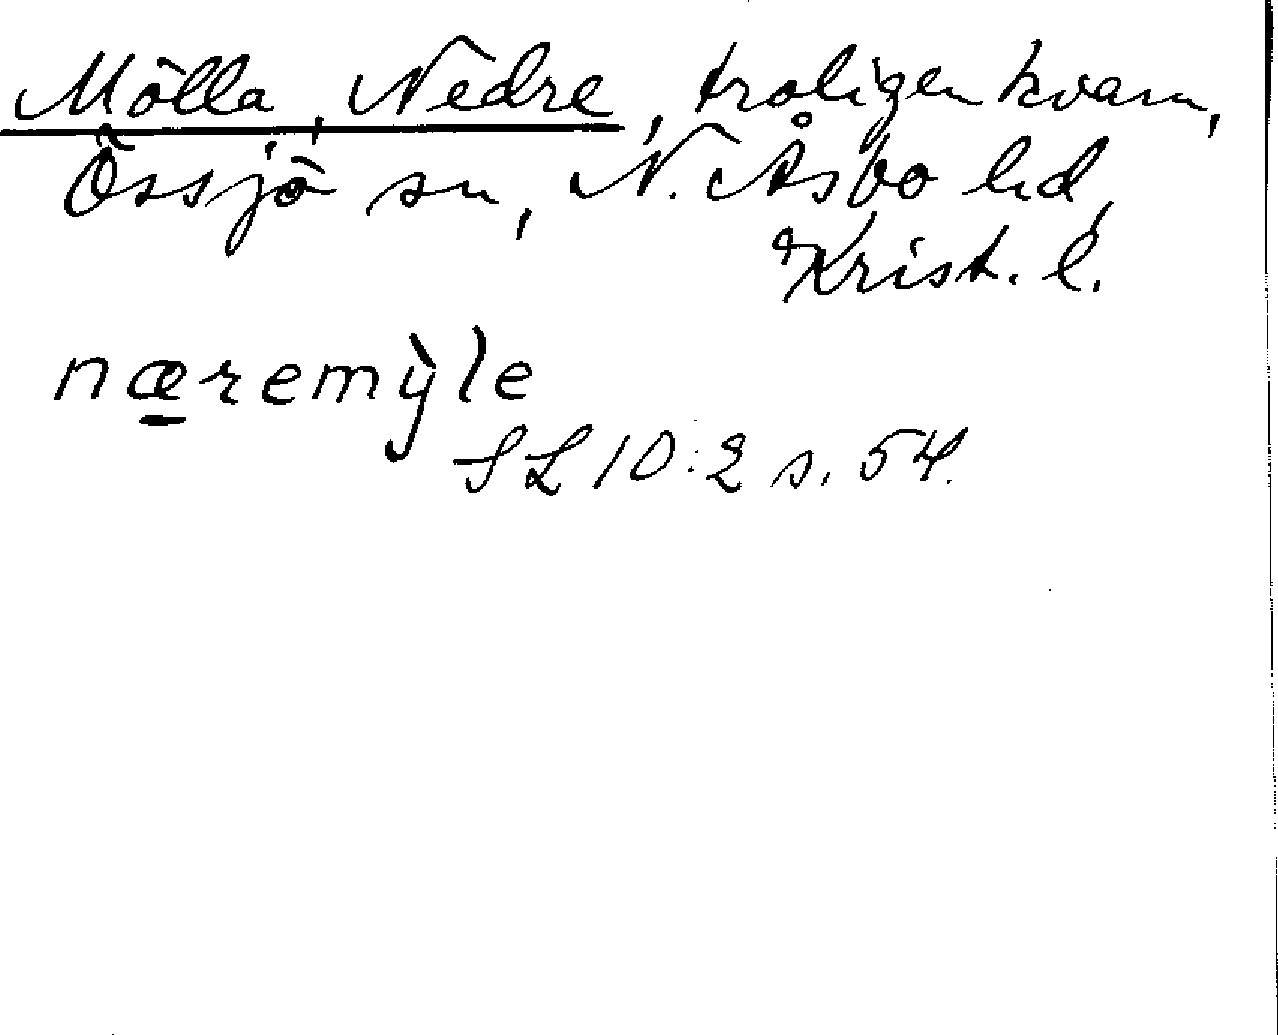 Mölla, Nedre, troligen kvarn,
Össjö sn, N. Åsbo hd,
Krist. l.
næ̱remỳle
SL 10:2 s. 54.